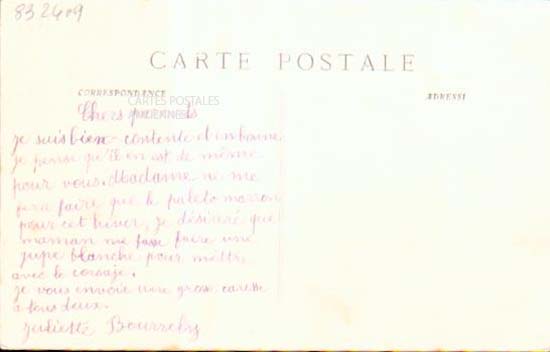 83 2409
CARTE POSTALE
CORRESPONDANCE
ADRESSE
CARTES POSTALES
ANCIENNES
Chers parents
je suis bien contente et en bonne
je pense qu'il en est de même
pour vous. Madame ne me
fera faire que le paleto marron
pour cet hiver, je désire que
maman me fasse faire une
jupe blanche pour mettre
avec le corsage.
je vous envoie une grosse caresse
a tous deux.
Juliette